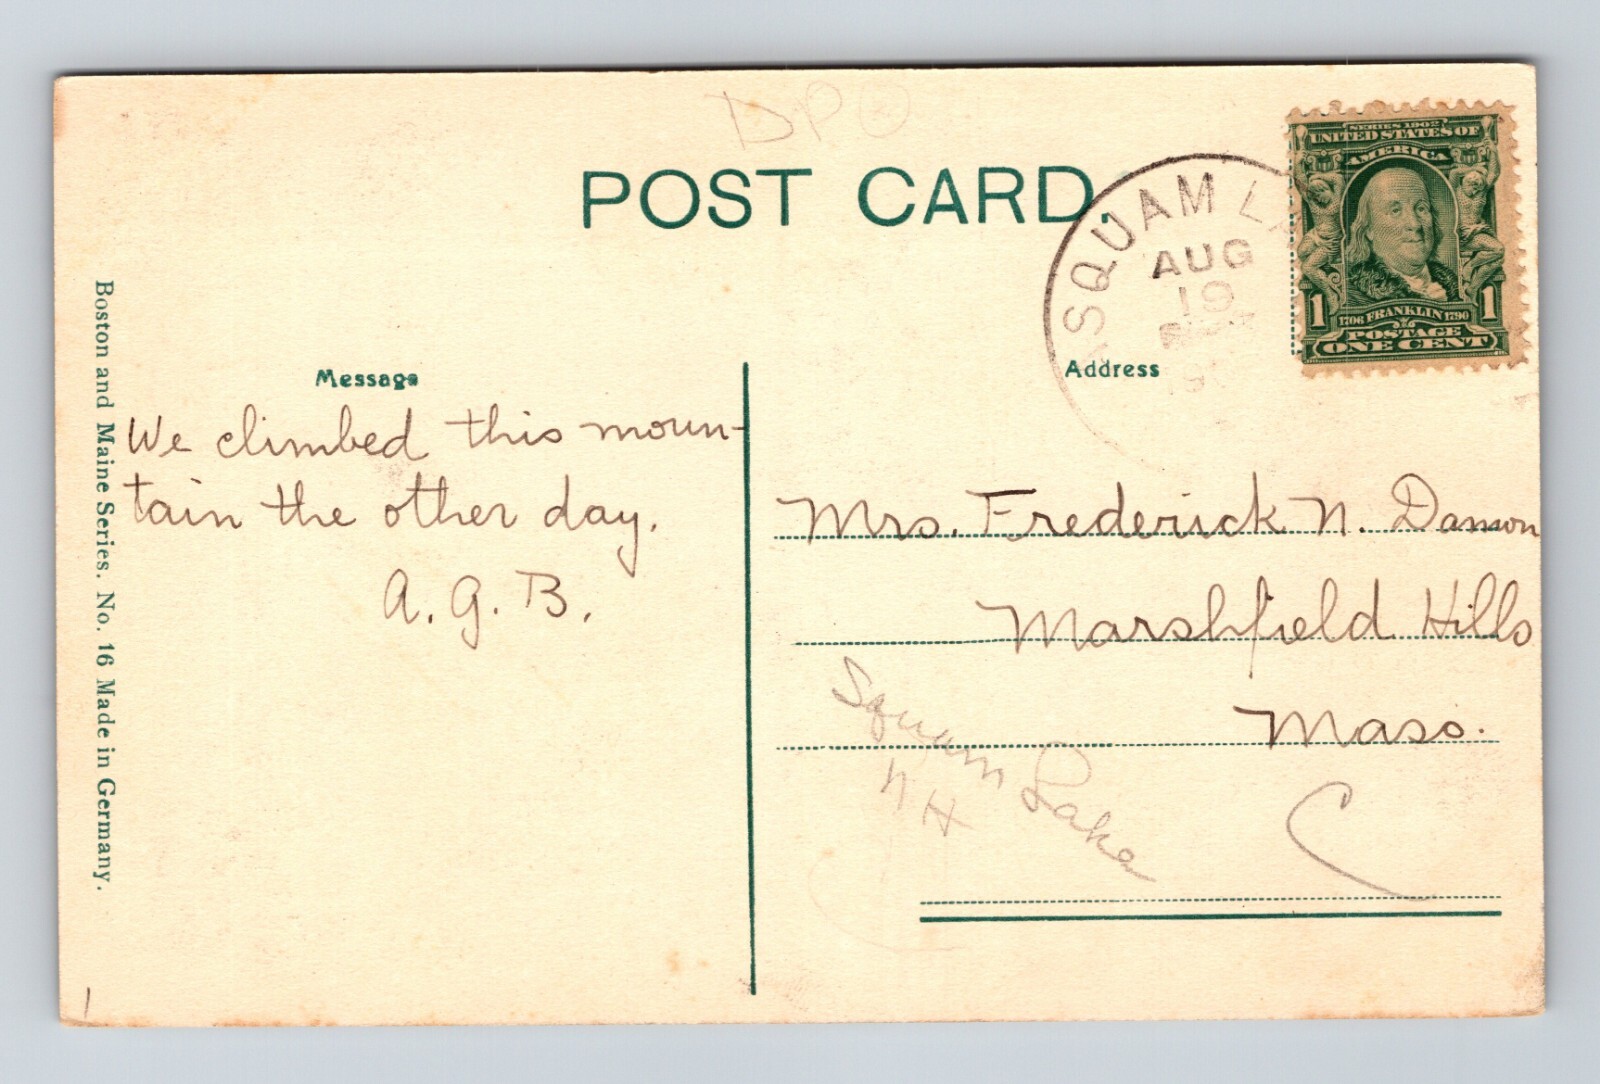 DPO
POST CARD.
ASQUAM LA
AUG
19
190
SERIES 1902
UNITED STATES OF
AMERICA
1 1
1706 FRANKLIN 1790
POSTAGE
ONE CENT
Message
Address
We climbed this moun-
tain the other day.
A. G. B.
Mrs. Frederick N. Damon
Marshfield Hills
Mass.
Squam Lake
NH
C
Boston and Maine Series. No. 16 Made in Germany.
1